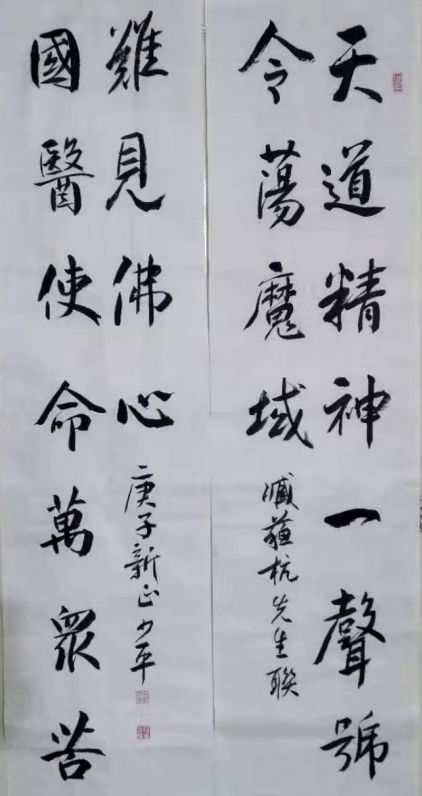 天道精神一聲號
令蕩魔域
杭先生聯
國醫使命萬眾苦
難見佛心
庚子新正少平